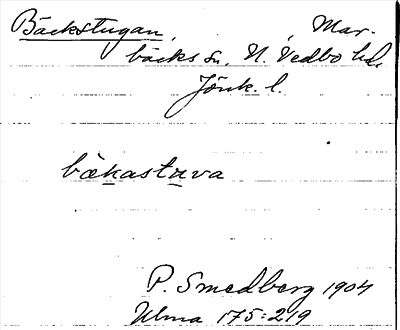 Bäckstugan, Mar-
bäcks sn, N. Vedbo hd.
Jönk. l.
bäkastuva
P. Smedberg 1904
Ulma 175:219